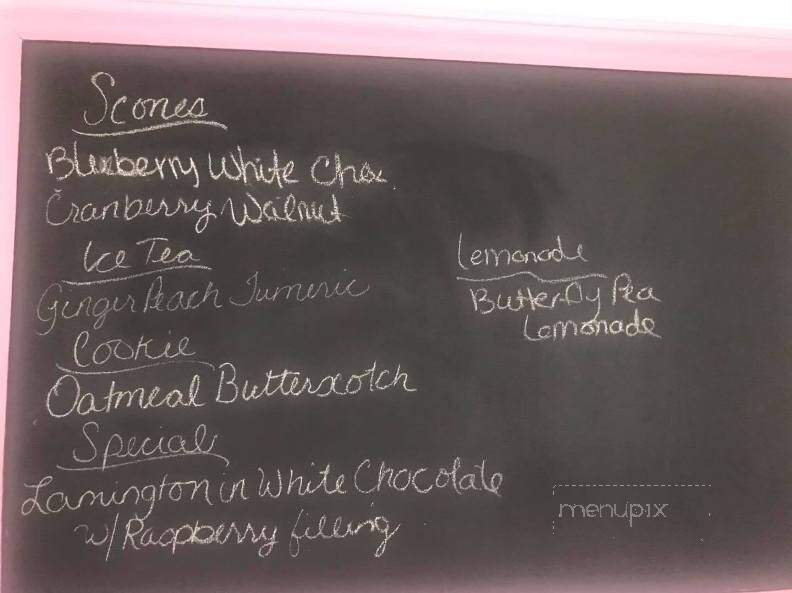 Scones
Blueberry White Choc.
Cranberry Walnut
Ice Tea
Ginger Peach Tumeric
Cookie
Oatmeal Butterscotch
Special
Lamington in White Chocolate
w/ Raspberry filling
Lemonade
Butterfly Pea
Lemonade
menupix